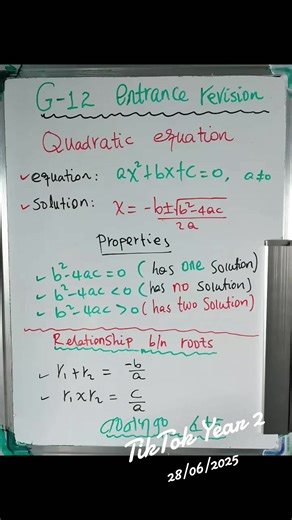 G-12 entrance revision
Quadratic equation
✓ equation: ax²+bx+c=0, a≠0
✓ solution: x = -b±√b²-4ac / 2a
Properties
✓ b²-4ac=0 (has one solution)
✓ b²-4ac<0 (has no solution)
✓ b²-4ac>0 (has two solution)
Relationship b/n roots
✓ r₁+r₂ = -b/a
✓ r₁×r₂ = c/a
TikTok Year 2
28/06/2025